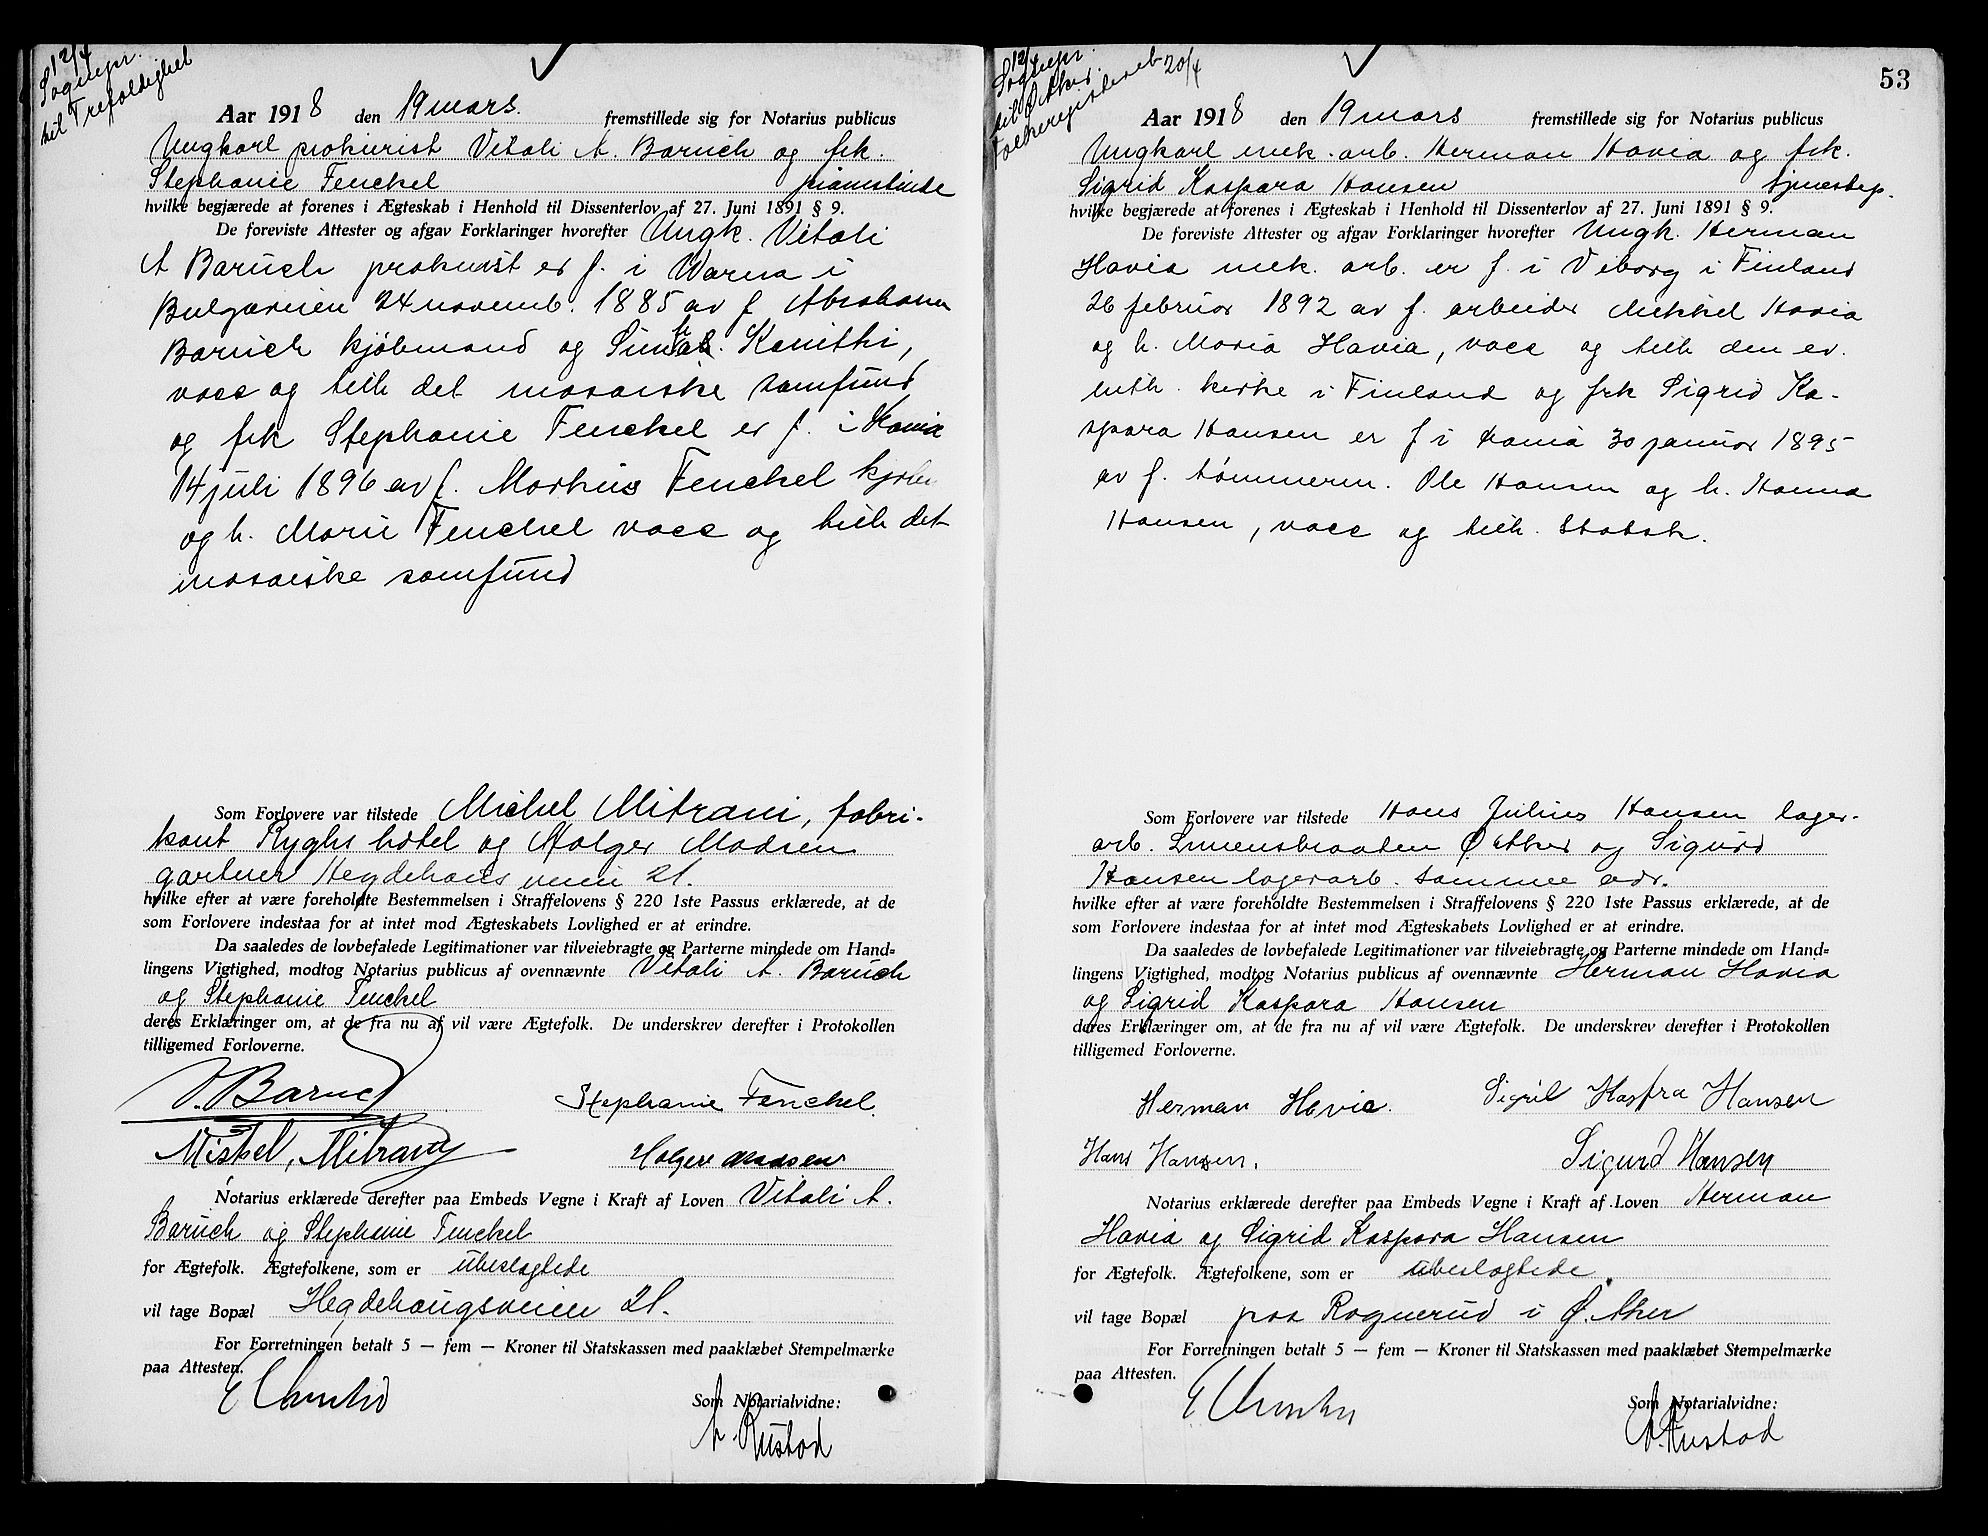 12/4
Sognepr.
til Trefoldighet
Aar 1918 den 19 mars. fremstillede sig for Notarius publicus
Ungkarl prokurist Vitali A. Baruch og frk.
Stephanie Fenckel pianistinde
hvilke begjærede at forenes i Ægteskab i Henhold til Dissenterlov af 27. Juni 1891 § 9.
De foreviste Attester og afgav Forklaringer hvorefter Ungk. Vitali
A Baruch prokurist er f. i Warna i
Bulgarien 24 novemb. 1885 av f Abraham
Baruch kjøbmand og Kamithi,
vacc og tilh det mosaiske samfund
og frk Stephanie Fenckel er f. i Krania
14 juli 1896 av f. Markus Fenckel kjøbm
og h. Marie Fenckel vacc og tilh det
mosaiske samfund
Som Forlovere var tilstede Michel Mitrani, fabri-
kant Ryghs hotel og Holger Madsen
gartner Hegdehaugsveien 21.
hvilke efter at være foreholdte Bestemmelsen i Straffelovens § 220 1ste Passus erklærede, at de
som Forlovere indestaa for at intet mod Ægteskabets Lovlighed er at erindre.
Da saaledes de lovbefalede Legitimationer var tilveiebragte og Parterne mindede om Hand-
lingens Vigtighed, modtog Notarius publicus af ovennævnte Vitali A. Baruch
og Stephanie Fenckel
deres Erklæringer om, at de fra nu af vil være Ægtefolk. De underskrev derefter i Protokollen
tilligemed Forloverne.
V. Baruch Stephanie Fenckel.
Mishel, Mitrany Holger Madsen
Notarius erklærede derefter paa Embeds Vegne i Kraft af Loven Vitali A.
Baruch og Stephanie Fenckel
for Ægtefolk. Ægtefolkene, som er ubeslagtede
vil tage Bopæl Hegdehaugsveien 21.
For Forretningen betalt 5 — fem — Kroner til Statskassen med paaklæbet Stempelmærke
paa Attesten.
Som Notarialvidne:
A. Rustad
53
12/4
Sognepr.
til Ø. Aker.
Folkeregisteret 20/4
Aar 1918 den 19 mars fremstillede sig for Notarius publicus
Ungkarl mek. arb. Herman Havia og frk.
Sigrid Kaspara Hansen tjenestep.
hvilke begjærede at forenes i Ægteskab i Henhold til Dissenterlov af 27. Juni 1891 § 9.
De foreviste Attester og afgav Forklaringer hvorefter Ungk. Herman
Havia mek. arb. er f. i Viborg i Finland
26 februar 1892 av f. arbeider Mekkel Havia
og h. Maria Havia, vacc og tilh den ev.
luth. kirke i Finland og frk Sigrid Ka-
spara Hansen er f i Krania 30 januar 1895
av f. tømmerm. Ole Hansen og h. Hanna
Hansen, vacc og tilh. Statsk.
Som Forlovere var tilstede Hans Julius Hansen lager-
arb. Ø Aker og Sigurd
Hansen lagerarb. samme adr.
hvilke efter at være foreholdte Bestemmelsen i Straffelovens § 220 1ste Passus erklærede, at de
som Forlovere indestaa for at intet mod Ægteskabets Lovlighed er at erindre.
Da saaledes de lovbefalede Legitimationer var tilveiebragte og Parterne mindede om Hand-
lingens Vigtighed, modtog Notarius publicus af ovennævnte Herman Havia
og Sigrid Kaspara Hansen
deres Erklæringer om, at de fra nu af vil være Ægtefolk. De underskrev derefter i Protokollen
tilligemed Forloverne.
Herman Havia. Sigrid Kaspra Hansen
Hans Hansen. Sigurd Hansen
Notarius erklærede derefter paa Embeds Vegne i Kraft af Loven Herman
Havia og Sigrid Kaspara Hansen
for Ægtefolk. Ægtefolkene, som er ubeslagtede.
vil tage Bopæl paa Rognerud i Ø. Aker
For Forretningen betalt 5 — fem — Kroner til Statskassen med paaklæbet Stempelmærke
paa Attesten.
Som Notarialvidne:
A. Rustad